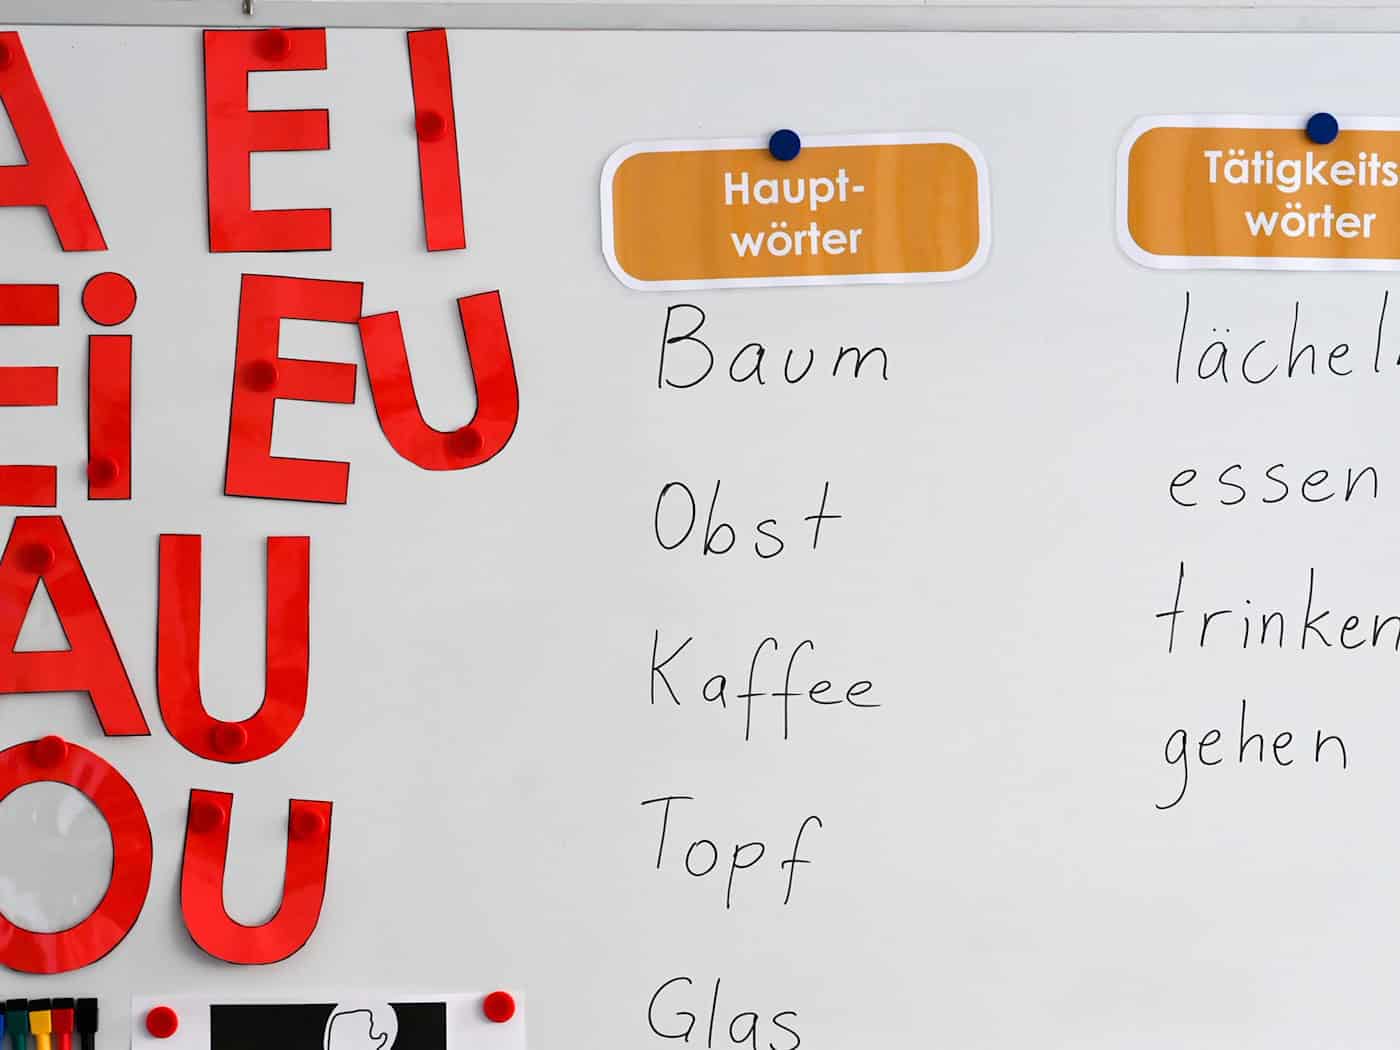 A E I
Ei EU
AU
OU
Haupt-
wörter
Baum
Obst
Kaffee
Topf
Glas
Tätigkeits
wörter
lächel
essen
trinken
gehen